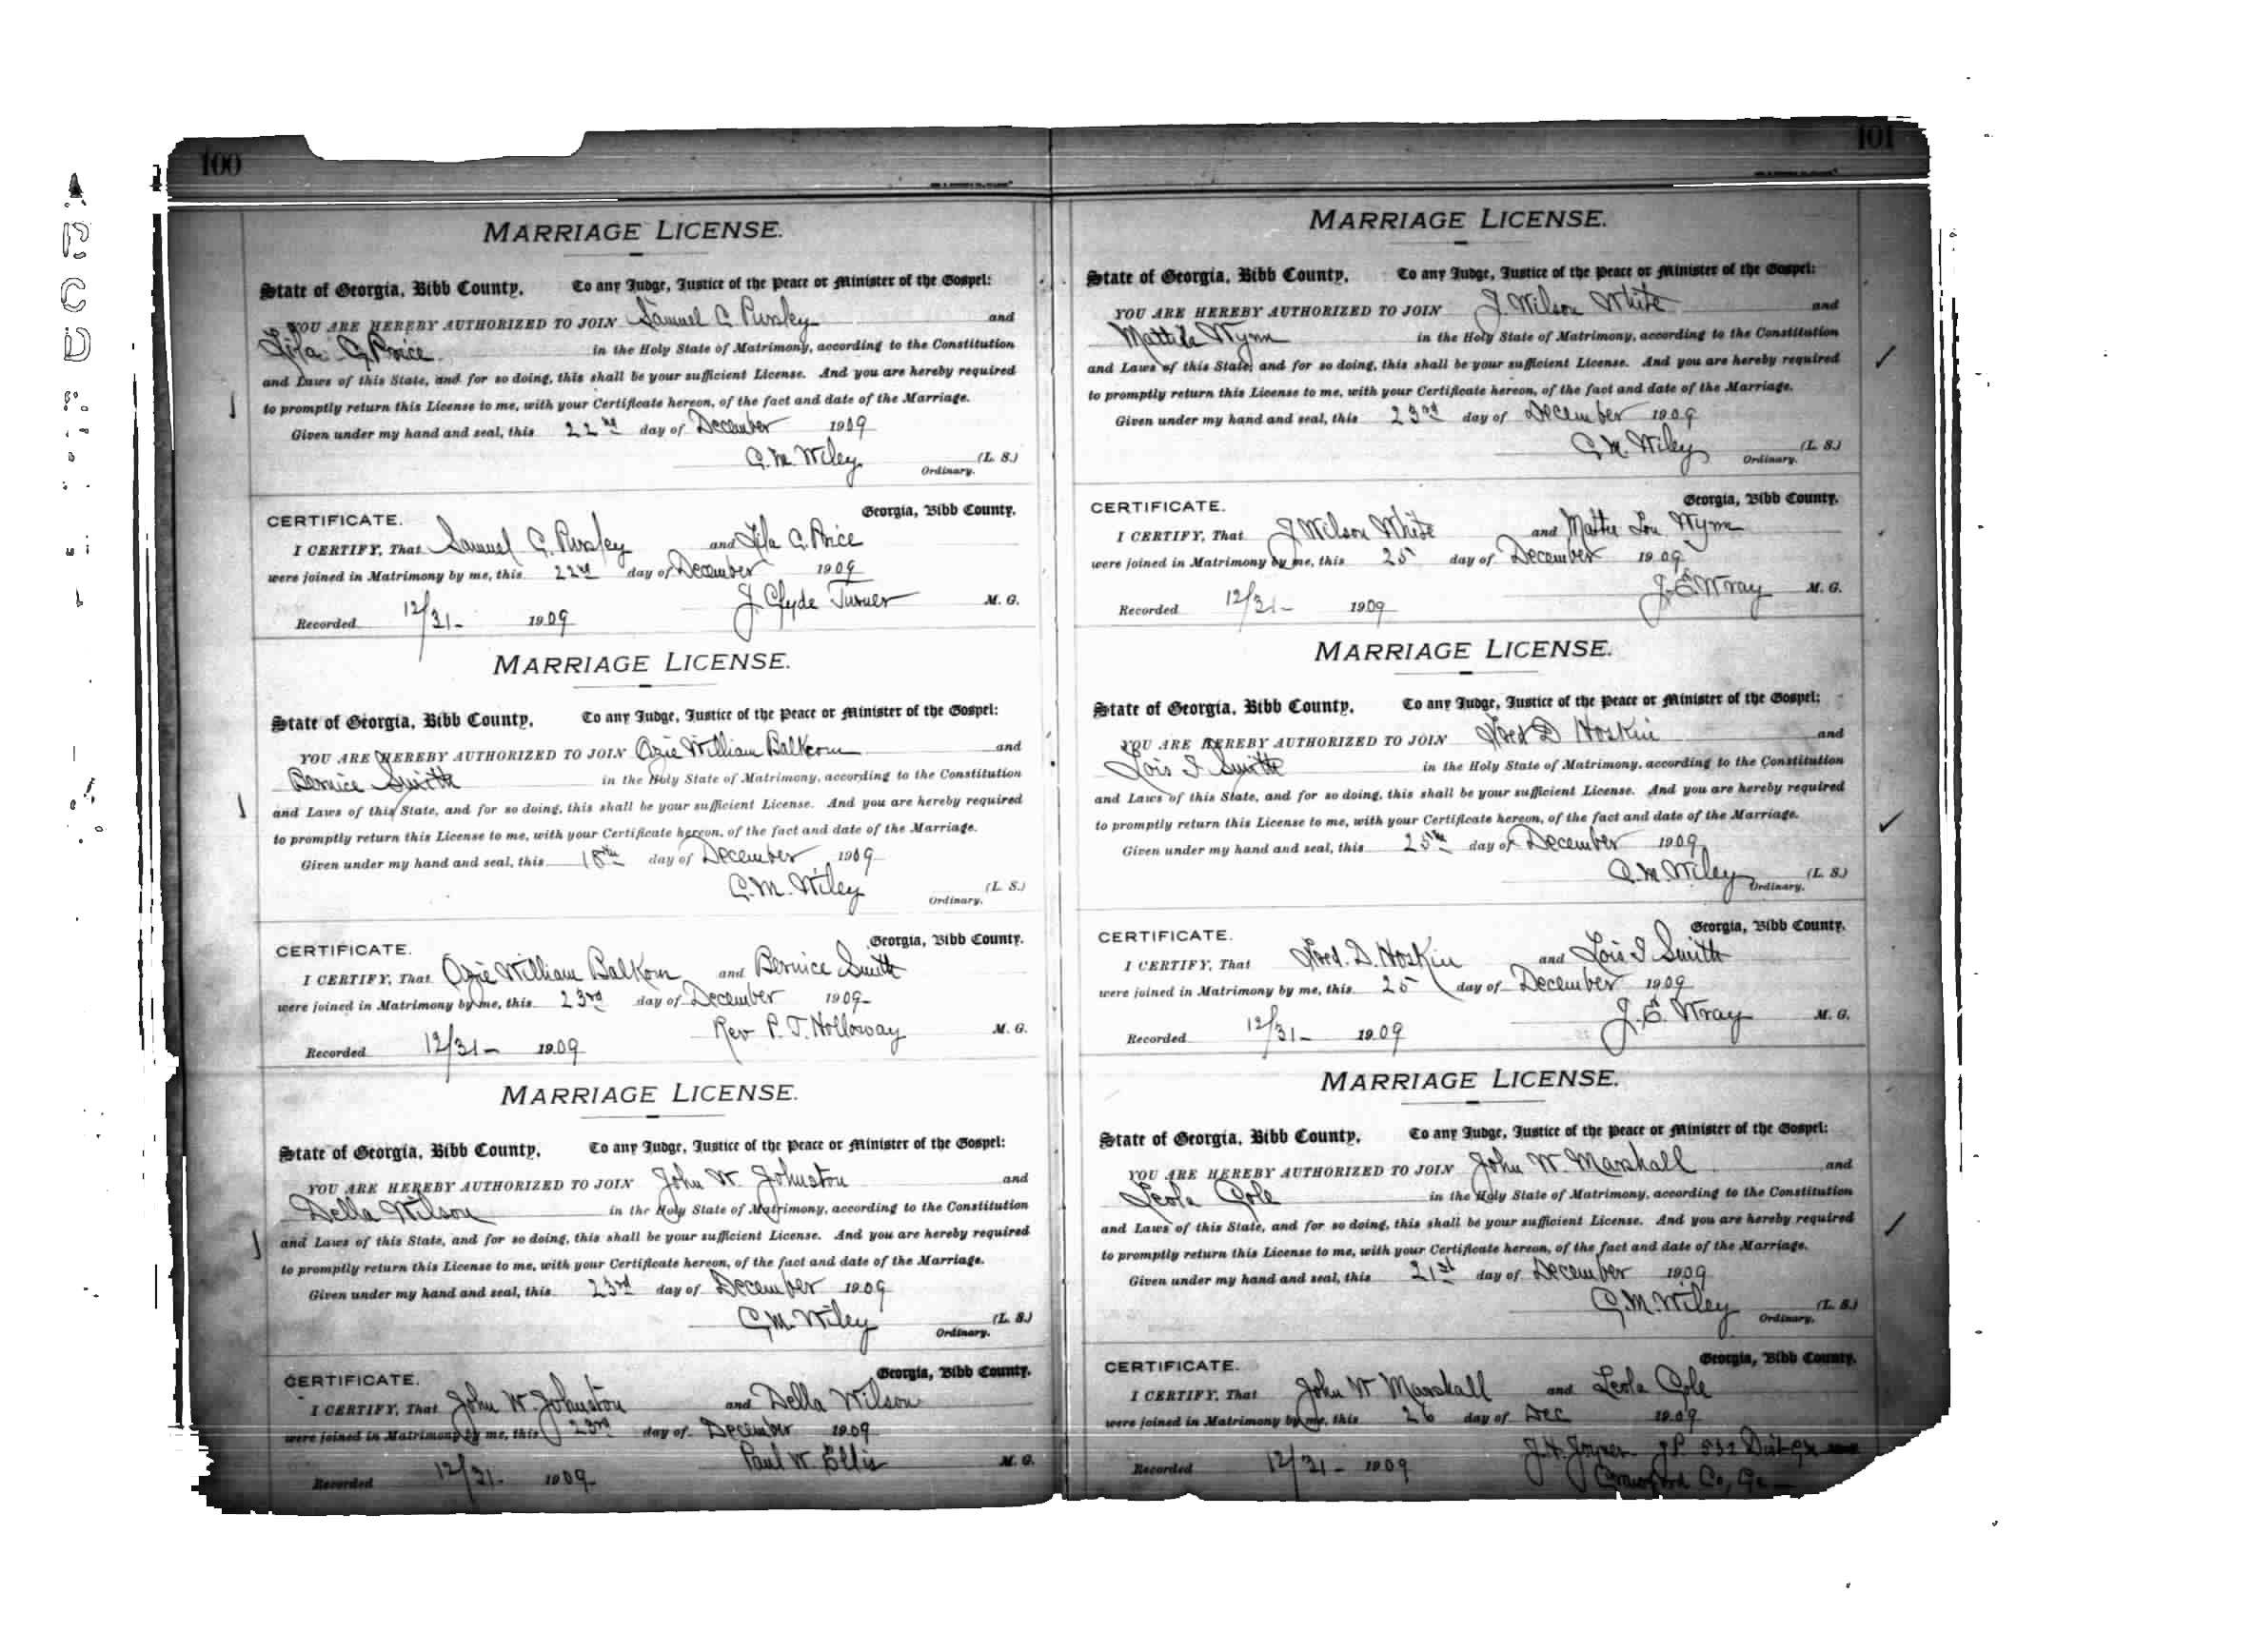 100
MARRIAGE LICENSE.
State of Georgia, Bibb County. To any Judge, Justice of the Peace or Minister of the Gospel:
YOU ARE HEREBY AUTHORIZED TO JOIN Samuel C. Pursley and
Price in the Holy State of Matrimony, according to the Constitution
and Laws of this State, and for so doing, this shall be your sufficient License. And you are hereby required
to promptly return this License to me, with your Certificate hereon, of the fact and date of the Marriage.
Given under my hand and seal, this 22nd day of December 1909
C. M. Wiley (L. S.)
Ordinary.
Georgia, Bibb County.
CERTIFICATE.
I CERTIFY, That Samuel C. Pursley and Price
were joined in Matrimony by me, this 22nd day of December 1909
J. Clyde Turner M. G.
Recorded 12/31- 1909
MARRIAGE LICENSE.
State of Georgia, Bibb County. To any Judge, Justice of the Peace or Minister of the Gospel:
YOU ARE HEREBY AUTHORIZED TO JOIN Ozie William Balkcom and
Bernice Smith in the Holy State of Matrimony, according to the Constitution
and Laws of this State, and for so doing, this shall be your sufficient License. And you are hereby required
to promptly return this License to me, with your Certificate hereon, of the fact and date of the Marriage.
Given under my hand and seal, this 18th day of December 1909
C. M. Wiley (L. S.)
Ordinary.
Georgia, Bibb County.
CERTIFICATE.
I CERTIFY, That Ozie William Balkom and Bernice Smith
were joined in Matrimony by me, this 23rd day of December 1909-
Rev P. T. Holloway M. G.
Recorded 12/31- 1909
MARRIAGE LICENSE.
State of Georgia, Bibb County. To any Judge, Justice of the Peace or Minister of the Gospel:
YOU ARE HEREBY AUTHORIZED TO JOIN John W. Johnston and
Della Wilson in the Holy State of Matrimony, according to the Constitution
and Laws of this State, and for so doing, this shall be your sufficient License. And you are hereby required
to promptly return this License to me, with your Certificate hereon, of the fact and date of the Marriage.
Given under my hand and seal, this 23rd day of December 1909
C. M. Wiley (L. S.)
Ordinary.
Georgia, Bibb County.
CERTIFICATE.
I CERTIFY, That John W. Johnston and Della Wilson
were joined in Matrimony by me, this 23rd day of December 1909
Paul W. Ellis M. G.
Recorded 12/31- 1909
101
MARRIAGE LICENSE.
State of Georgia, Bibb County. To any Judge, Justice of the Peace or Minister of the Gospel:
YOU ARE HEREBY AUTHORIZED TO JOIN J. Wilson White and
Wynn in the Holy State of Matrimony, according to the Constitution
and Laws of this State, and for so doing, this shall be your sufficient License. And you are hereby required
to promptly return this License to me, with your Certificate hereon, of the fact and date of the Marriage.
Given under my hand and seal, this 23rd day of December 1909
C. M. Wiley (L. S.)
Ordinary.
Georgia, Bibb County.
CERTIFICATE.
I CERTIFY, That J Wilson White and Mattie Lou Wynn
were joined in Matrimony by me, this 25 day of December 1909
J. E. Wray M. G.
Recorded 12/31- 1909
MARRIAGE LICENSE.
State of Georgia, Bibb County. To any Judge, Justice of the Peace or Minister of the Gospel:
YOU ARE HEREBY AUTHORIZED TO JOIN Fred D Hoskin and
Lois I Smith in the Holy State of Matrimony, according to the Constitution
and Laws of this State, and for so doing, this shall be your sufficient License. And you are hereby required
to promptly return this License to me, with your Certificate hereon, of the fact and date of the Marriage.
Given under my hand and seal, this 25th day of December 1909
C. M. Wiley (L. S.)
Ordinary.
Georgia, Bibb County.
CERTIFICATE.
I CERTIFY, That Fred. D. Hoskin and Lois I Smith
were joined in Matrimony by me, this 25 day of December 1909
J. E. Wray M. G.
Recorded 12/31- 1909
MARRIAGE LICENSE.
State of Georgia, Bibb County. To any Judge, Justice of the Peace or Minister of the Gospel:
YOU ARE HEREBY AUTHORIZED TO JOIN John W. Marshall and
Leola Cole in the Holy State of Matrimony, according to the Constitution
and Laws of this State, and for so doing, this shall be your sufficient License. And you are hereby required
to promptly return this License to me, with your Certificate hereon, of the fact and date of the Marriage.
Given under my hand and seal, this 21st day of December 1909
C. M. Wiley (L. S.)
Ordinary.
Georgia, Bibb County.
CERTIFICATE.
I CERTIFY, That John W Marshall and Leola Cole
were joined in Matrimony by me, this 26 day of Dec 1909
J. H. Joyner JP 532 Dist GM
Recorded 12/31- 1909 Crawford Co, Ga-